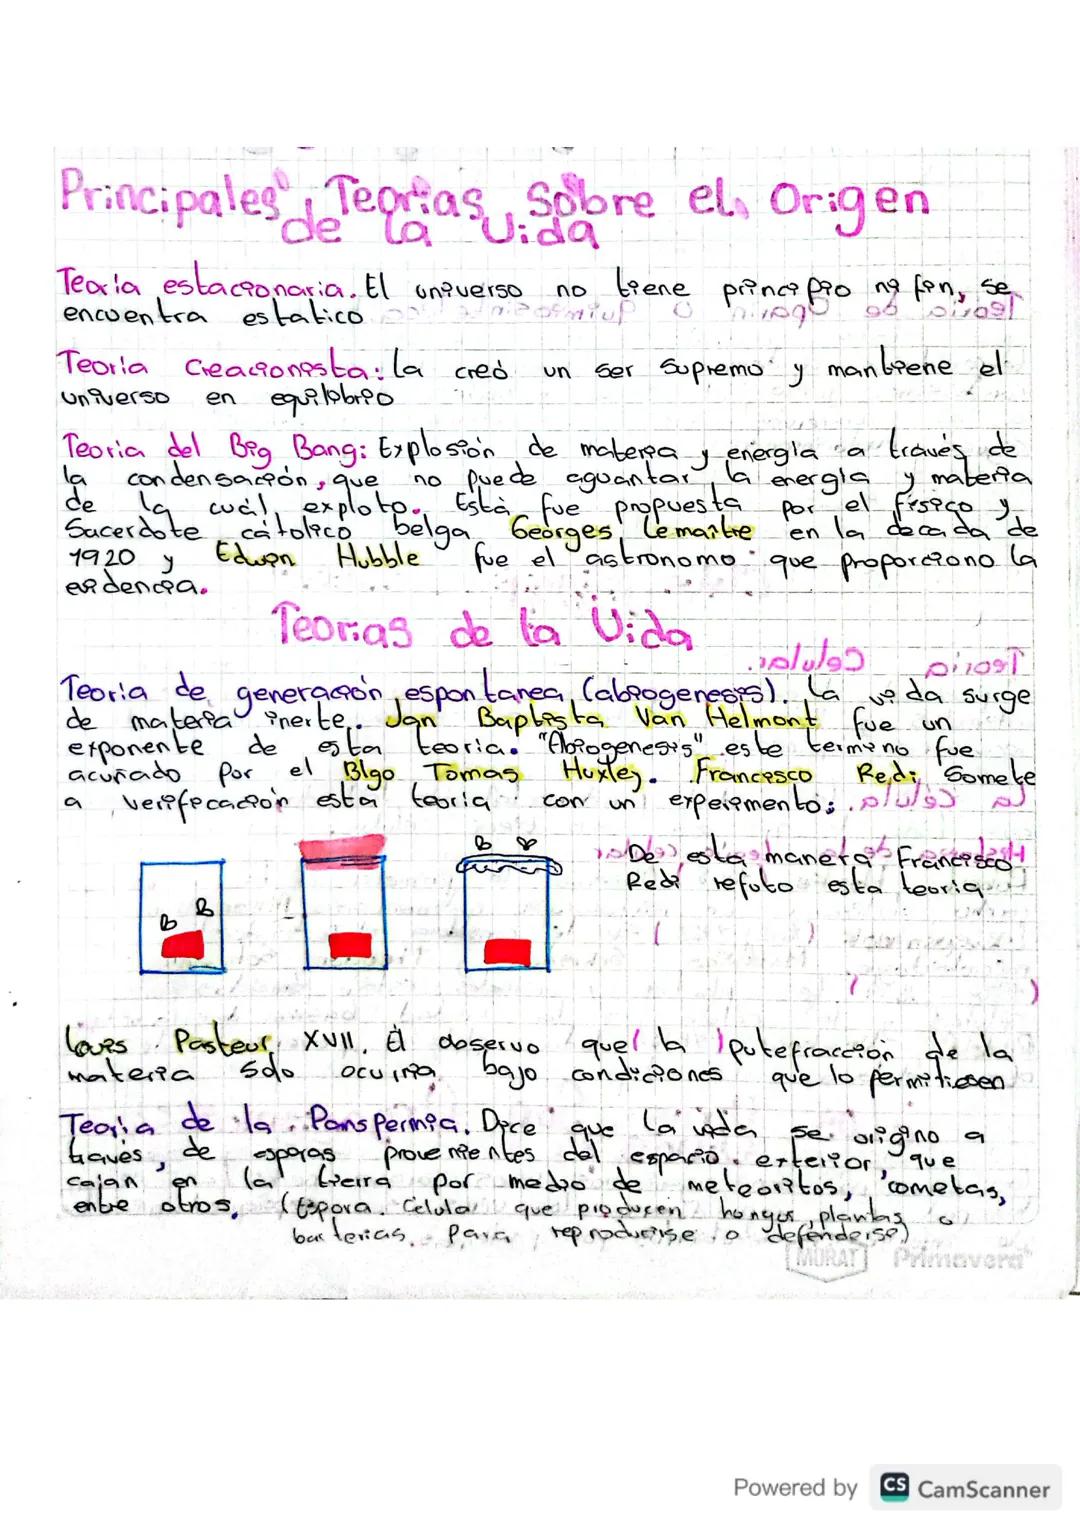 Principales Teorias Sobre el Origen
de la Vida
Teoria estacionaria. El universo no tiene principio ni fin, se
encuentra estatico
Teoria Creacionista: la creó un ser supremo y mantiene el
universo en equilibrio
Teoria del Big Bang: Explosión de materia y energía a través de
la condensación, que no puede aguantar la energía y materia
de la cuál exploto. Está fue propuesta por el físico y
Sacerdote cátolico belga Georges Lemaitre en la decada de
1920 y Edwin Hubble fue el astronomo que proporciono la
evidencia.
Teorias de la Vida
Teoria de generación espontanea (abiogenesis). La vida surge
de materia inerte. Jan Baptista Van Helmont fue un
exponente de esta teoria. "Abiogenesis" este termino fue
acuñado por el Blgo Tomas Huxley. Francisco Redi Somete
a verificación esta teoria con un experimento:
De esta manera Francisco
Redi refuto esta teoria
B B
B
Louis Pasteur, XVII. Él observo que la putefracción de la
materia solo ocurria bajo condiciones que lo permitiesen
Teoria de la Panspermia. Dice que la vida se origino a
traves de esporas provenientes del espacio exterior, que
caian en la tierra por medio de meteoritos, cometas,
entre otros. (Espora. Celula que producen hongos, plantas o
bacterias para reproducirse o defenderse)
MURAT Primavera
Powered by CS CamScanner